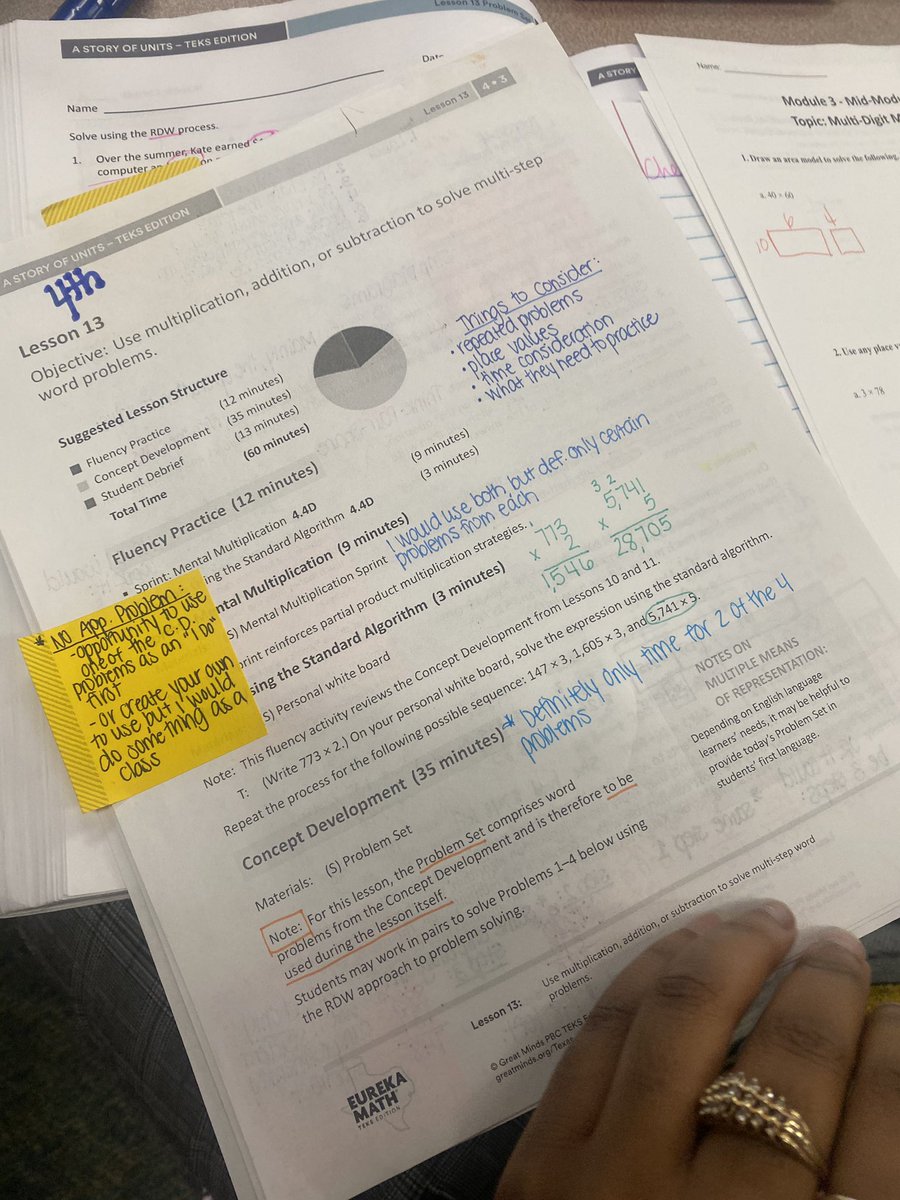 Lesson 13 Problem Se
A STORY OF UNITS – TEKS EDITION
Name
Date
Solve using the RDW process.
1. Over the summer, Kate earned
computer an
A STORY
Name:
Module 3 - Mid-Modu
Topic: Multi-Digit M
1. Draw an area model to solve the following.
a. 40 × 60
6 4
10
2. Use any place v
a. 3 × 78
Che
A STORY OF UNITS – TEKS EDITION
Lesson 13 4•3
4th
Lesson 13
Objective: Use multiplication, addition, or subtraction to solve multi-step
word problems.
Things to consider:
• repeated problems
• place values
• time consideration
• what they need to practice
Suggested Lesson Structure
Fluency Practice (12 minutes)
Concept Development (35 minutes)
Student Debrief (13 minutes)
Total Time (60 minutes)
Fluency Practice (12 minutes)
Sprint: Mental Multiplication 4.4D (9 minutes)
ing the Standard Algorithm 4.4D (3 minutes)
ntal Multiplication (9 minutes)
S) Mental Multiplication Sprint
I would use both but def. only certain
problems from each
print reinforces partial product multiplication strategies.
773
× 2
1,546
3 2
5,741
× 5
28,705
sing the Standard Algorithm (3 minutes)
S) Personal white board
Note: This fluency activity reviews the Concept Development from Lessons 10 and 11.
T: (Write 773 × 2.) On your personal white board, solve the expression using the standard algorithm.
Repeat the process for the following possible sequence: 147 × 3, 1,605 × 3, and 5,741 × 5.
* No App. Problem:
- opportunity to use
one of the C.D.
problems as an "I Do"
first
- or create your own
to use but I would
do something as a
class
Concept Development (35 minutes)
* Definitely only time for 2 of the 4
problems
Materials: (S) Problem Set
Note: For this lesson, the Problem Set comprises word
problems from the Concept Development and is therefore to be
used during the lesson itself.
Students may work in pairs to solve Problems 1–4 below using
the RDW approach to problem solving.
NOTES ON
MULTIPLE MEANS
OF REPRESENTATION:
Depending on English language
learners' needs, it may be helpful to
provide today's Problem Set in
students' first language.
Lesson 13: Use multiplication, addition, or subtraction to solve multi-step word
problems.
© Great Minds PBC TEKS E
greatminds.org/Texas
EUREKA
MATH
TEKS EDITION